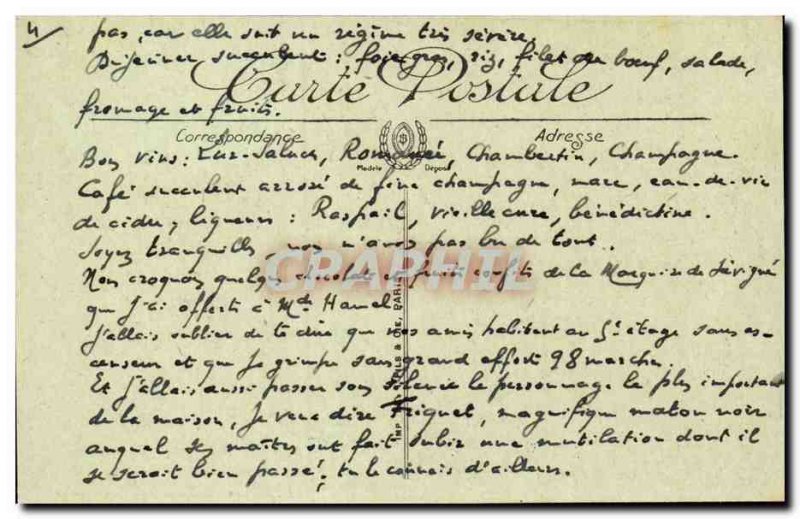 4/
pas, car elle suit un régime très sévère.
Déjeuner succulent : foie gras, riz, filet de bœuf, salade,
Carte Postale
fromage et fruits.
Correspondance
Adresse
Modèle Déposé
Bons vins : Lur-Saluces, Romanée, Chambertin, Champagne.
Café succulent arrosé de fine champagne, marc, eau-de-vie
de cidre, liqueurs : Raspail, vieille cure, bénédictine.
Soyez tranquilles, nous n'avons pas bu de tout..
Nous croquons quelques chocolats et fruits confits de la Marquise de Sévigné
que j'ai offerts à Mde Hamel
J'allais oublier de te dire que nos amis habitent au 5e étage sans as-
censeur et que je grimpe sans grand effort 98 marches.
Et j'allais aussi passer sous silence le personnage le plus important
de la maison, je veux dire Friquet, magnifique matou noir
auquel ses maîtres ont fait subir une mutilation dont il
se serait bien passé ; tu le connais d'ailleurs.
IMP & CIE, PARIS
CARTAPHIL